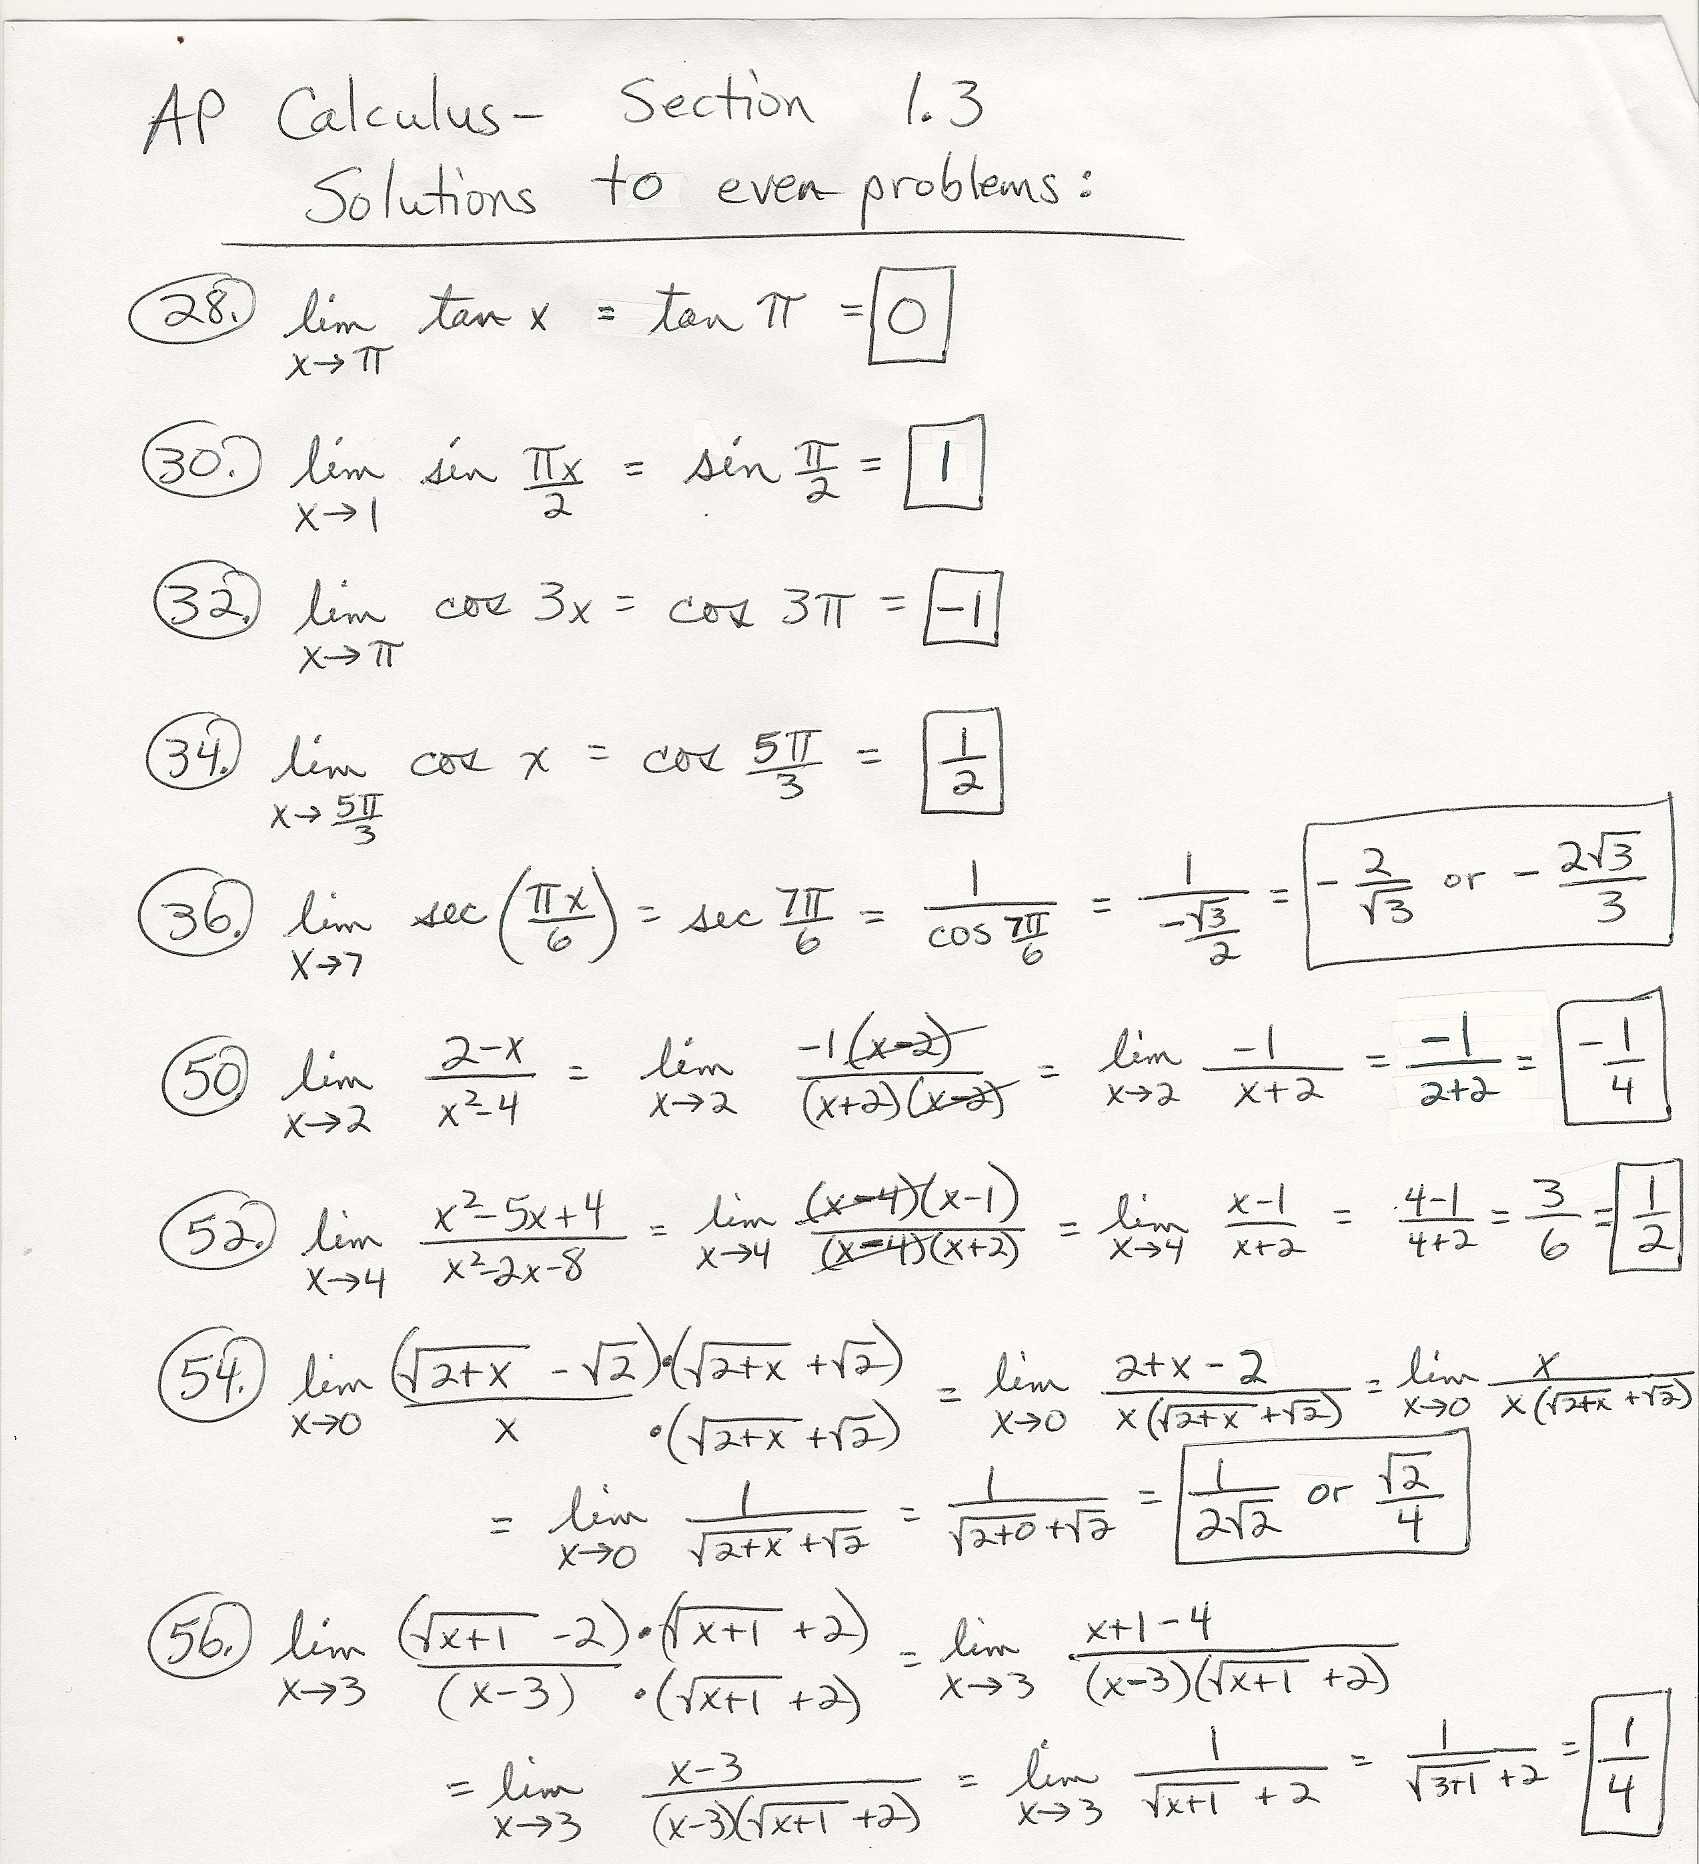 AP Calculus- Section 1.3
Solutions to even problems:
28. lim x→π tan x = tan π = 0
30. lim x→1 sin πx/2 = sin π/2 = 1
32. lim x→π cos 3x = cos 3π = -1
34. lim x→5π/3 cos x = cos 5π/3 = 1/2
36. lim x→7 sec(πx/6) = sec 7π/6 = 1/(cos 7π/6) = 1/(-√3/2) = -2/√3 or -2√3/3
50. lim x→2 (2-x)/(x²-4) = lim x→2 -1(x-2)/((x+2)(x-2)) = lim x→2 -1/(x+2) = -1/(2+2) = -1/4
52. lim x→4 (x²-5x+4)/(x²-2x-8) = lim x→4 (x-4)(x-1)/((x-4)(x+2)) = lim x→4 (x-1)/(x+2) = (4-1)/(4+2) = 3/6 = 1/2
54. lim x→0 (√(2+x) -√2)·(√(2+x) +√2)/(x ·(√(2+x) +√2)) = lim x→0 (2+x-2)/(x(√(2+x) +√2)) = lim x→0 x/(x(√(2+x) +√2))
= lim x→0 1/(√(2+x) +√2) = 1/(√(2+0) +√2) = 1/(2√2) or √2/4
56. lim x→3 (√(x+1) -2)·(√(x+1) +2)/((x-3) ·(√(x+1) +2)) = lim x→3 (x+1-4)/((x-3)(√(x+1) +2))
= lim x→3 (x-3)/((x-3)(√(x+1) +2)) = lim x→3 1/(√(x+1) +2) = 1/(√(3+1) +2) = 1/4